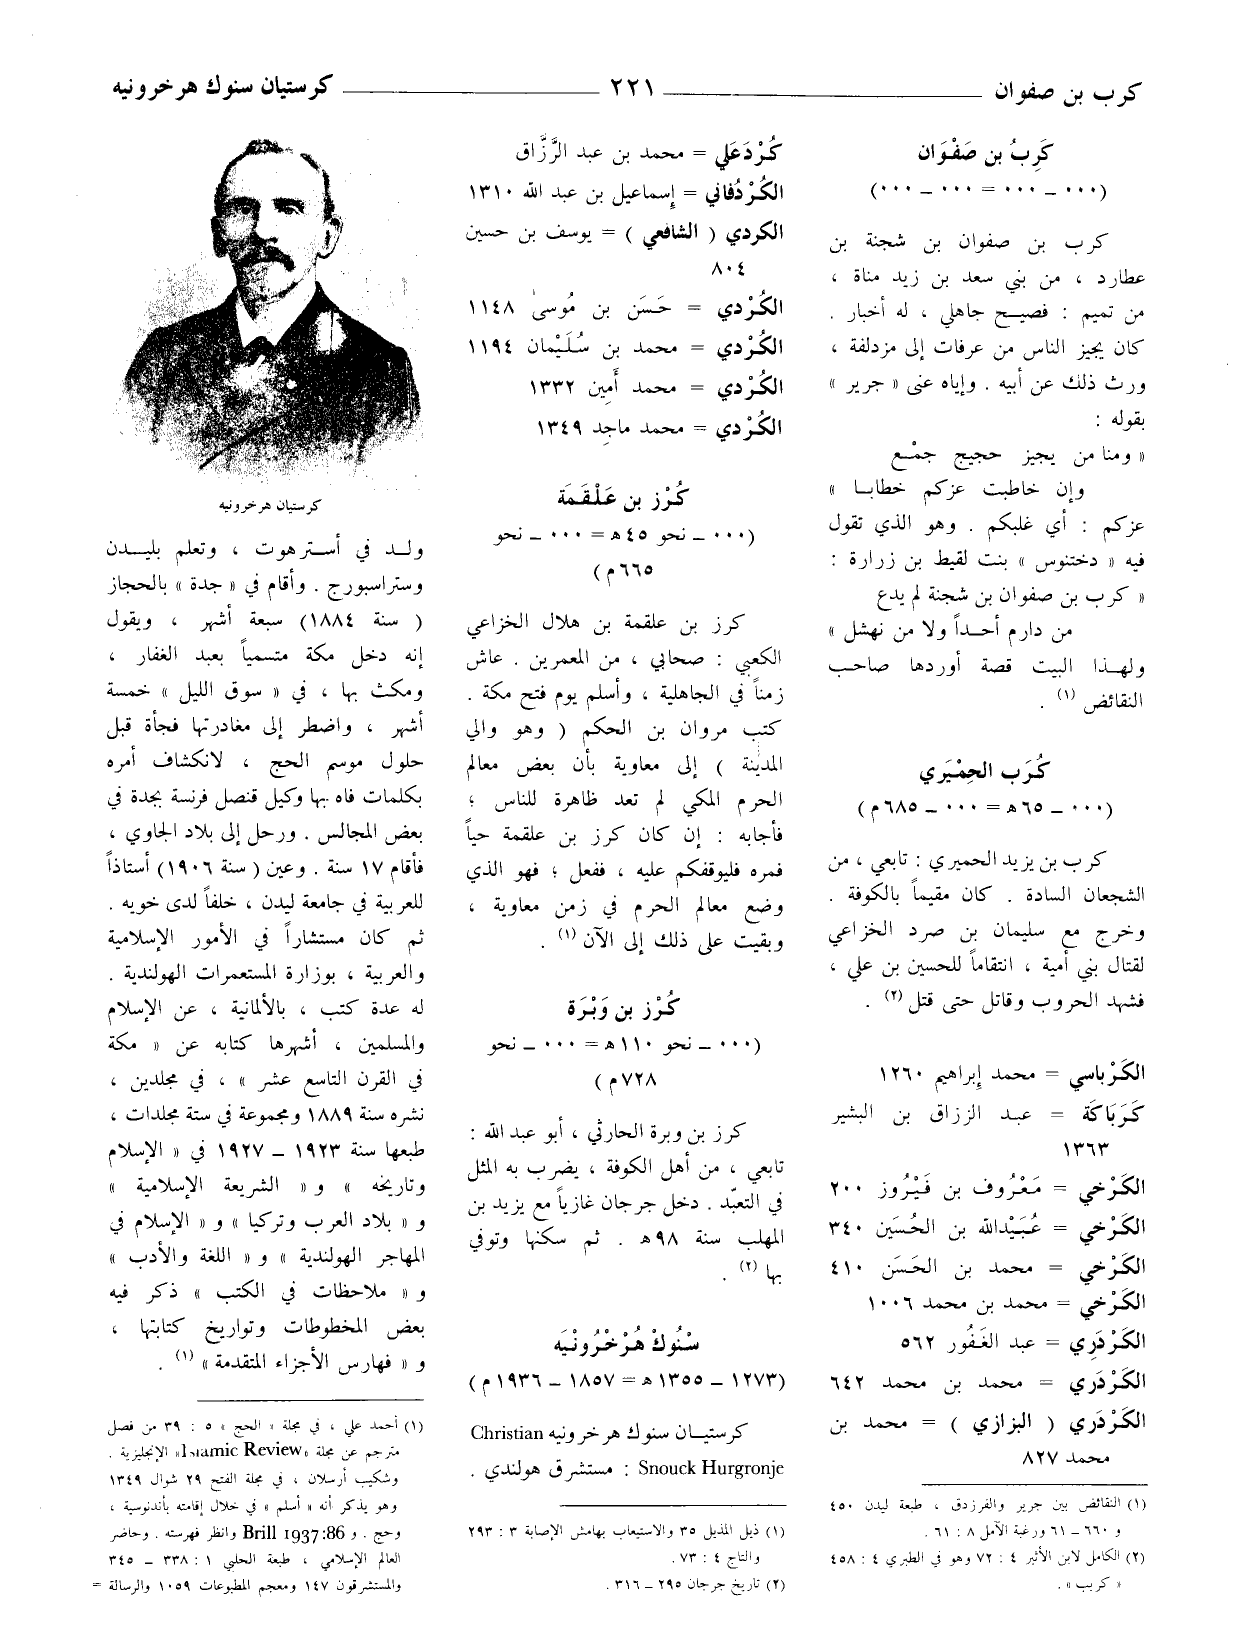 كرب بن صفوان ٢٢١ كرستيان سنوك هرخرونيه
كَرِبُ بن صَفْوَان
(٠٠٠ ــ ٠٠٠ = ٠٠٠ ــ ٠٠٠)
كرب بن صفوان بن شجنة بن
عطارد ، من بني سعد بن زيد مناة ،
من تميم : فصيح جاهلي ، له أخبار .
كان يجيز الناس من عرفات إلى مزدلفة ،
ورث ذلك عن أبيه . وإياه عنى « جرير »
بقوله :
« ومنا من يجيز حجيج جمْع
وإن خاطبت عزكم خطابا »
عزكم : أي غلبكم . وهو الذي تقول
فيه « دختنوس » بنت لقيط بن زرارة :
« كرب بن صفوان بن شجنة لم يدع
من دارم أحداً ولا من نهشل »
ولهذا البيت قصة أوردها صاحب
النقائض (١) .
كُرَب الحِمْيَري
(٠٠٠ ــ ٦٥ه = ٠٠٠ ــ ٦٨٥م)
كرب بن يزيد الحميري : تابعي ، من
الشجعان السادة . كان مقيماً بالكوفة .
وخرج مع سليمان بن صرد الخزاعي
لقتال بني أمية ، انتقاماً للحسين بن علي ،
فشهد الحروب وقاتل حتى قتل (٢) .
الكَرْباسي = محمد إبراهيم ١٢٦٠
كَرَبَاكَة = عبد الرزاق بن البشير
١٣٦٣
الكَرْخي = مَعْرُوف بن فَيْرُوز ٢٠٠
الكَرْخي = عُبَيْدالله بن الحُسَين ٣٤٠
الكَرْخي = محمد بن الحَسَن ٤١٠
الكَرْخي = محمد بن محمد ١٠٠٦
الكَرْدَرِي = عبد الغَفُور ٥٦٢
الكَرْدَري = محمد بن محمد ٦٤٢
الكَرْدَري ( البزازي ) = محمد بن
محمد ٨٢٧
(١) النقائض بين جرير والفرزدق ، طبعة ليدن ٤٥٠
و ٦٦٠ــ ٦١ ورغبة الآمل ٨ : ٦١ .
(٢) الكامل لابن الأثير ٤ : ٧٢ وهو في الطبري ٤ : ٤٥٨
« كريب » .
كُرْدَعَلي = محمد بن عبد الرَّزَّاق
الكُرْدُفاني = إسماعيل بن عبد الله ١٣١٠
الكردي ( الشافعي ) = يوسف بن حسين
٨٠٤
الكُرْدي = حَسَن بن مُوسىٰ ١١٤٨
الكُرْدي = محمد بن سُلَيْمان ١١٩٤
الكُرْدي = محمد أَمِين ١٣٣٢
الكُرْدي = محمد ماجِد ١٣٤٩
كُرْز بن عَلْقَمَة
(٠٠٠ ــ نحو ٤٥ه = ٠٠٠ ــ نحو
٦٦٥م)
كرز بن علقمة بن هلال الخزاعي
الكعبي : صحابي ، من المعمرين . عاش
زمناً في الجاهلية ، وأسلم يوم فتح مكة .
كتب مروان بن الحكم ( وهو والي
المدينة ) إلى معاوية بأن بعض معالم
الحرم المكي لم تعد ظاهرة للناس ؛
فأجابه : إن كان كرز بن علقمة حياً
فمره فليوقفكم عليه ، ففعل ؛ فهو الذي
وضع معالم الحرم في زمن معاوية ،
وبقيت على ذلك إلى الآن (١) .
كُرْز بن وَبْرَة
(٠٠٠ ــ نحو ١١٠ه = ٠٠٠ ــ نحو
٧٢٨م)
كرز بن وبرة الحارثي ، أبو عبد الله :
تابعي ، من أهل الكوفة ، يضرب به المثل
في التعبّد . دخل جرجان غازياً مع يزيد بن
المهلب سنة ٩٨ه . ثم سكنها وتوفي
بها (٢) .
سْنُوكْ هُرْخْرُونْيَه
(١٢٧٣ ــ ١٣٥٥ه = ١٨٥٧ ــ ١٩٣٦م)
كرستيان سنوك هرخرونيه Christian
Snouck Hurgronje : مستشرق هولندي .
(١) ذيل المذيل ٣٥ والاستيعاب بهامش الإصابة ٣ : ٢٩٣
والتاج ٤ : ٧٣ .
(٢) تاريخ جرجان ٢٩٥ ــ ٣١٦ .
كرستيان هرخرونيه
ولد في أسترهوت ، وتعلم بليدن
وستراسبورج . وأقام في « جدة » بالحجاز
( سنة ١٨٨٤) سبعة أشهر ، ويقول
إنه دخل مكة متسمياً بعبد الغفار ،
ومكث بها ، في « سوق الليل » خمسة
أشهر ، واضطر إلى مغادرتها فجأة قبل
حلول موسم الحج ، لانكشاف أمره
بكلمات فاه بها وكيل قنصل فرنسة بجدة في
بعض المجالس . ورحل إلى بلاد الجاوي ،
فأقام ١٧ سنة . وعين ( سنة ١٩٠٦) أستاذاً
للعربية في جامعة ليدن ، خلفاً لدى خويه .
ثم كان مستشاراً في الأمور الإسلامية
والعربية ، بوزارة المستعمرات الهولندية .
له عدة كتب ، بالألمانية ، عن الإسلام
والمسلمين ، أشهرها كتابه عن « مكة
في القرن التاسع عشر » ، في مجلدين ،
نشره سنة ١٨٨٩ ومجموعة في ستة مجلدات ،
طبعها سنة ١٩٢٣ ــ ١٩٢٧ في « الإسلام
وتاريخه » و « الشريعة الإسلامية »
و « بلاد العرب وتركيا » و « الإسلام في
المهاجر الهولندية » و « اللغة والأدب »
و « ملاحظات في الكتب » ذكر فيه
بعض المخطوطات وتواريخ كتابتها ،
و « فهارس الأجزاء المتقدمة » (١) .
(١) أحمد علي ، في مجلة « الحج » ٥ : ٣٩ من فصل
مترجم عن مجلة «Islamic Review» الإنجليزية .
وشكيب أرسلان ، في مجلة الفتح ٢٩ شوال ١٣٤٩
وهو يذكر أنه « أسلم » في خلال إقامته بأندنوسية ،
وحج . و Brill 1937:86 وانظر فهرسته . وحاضر
العالم الإسلامي ، طبعة الحلبي ١ : ٣٣٨ ــ ٣٤٥
والمستشرقون ١٤٧ ومعجم المطبوعات ١٠٥٩ والرسالة =